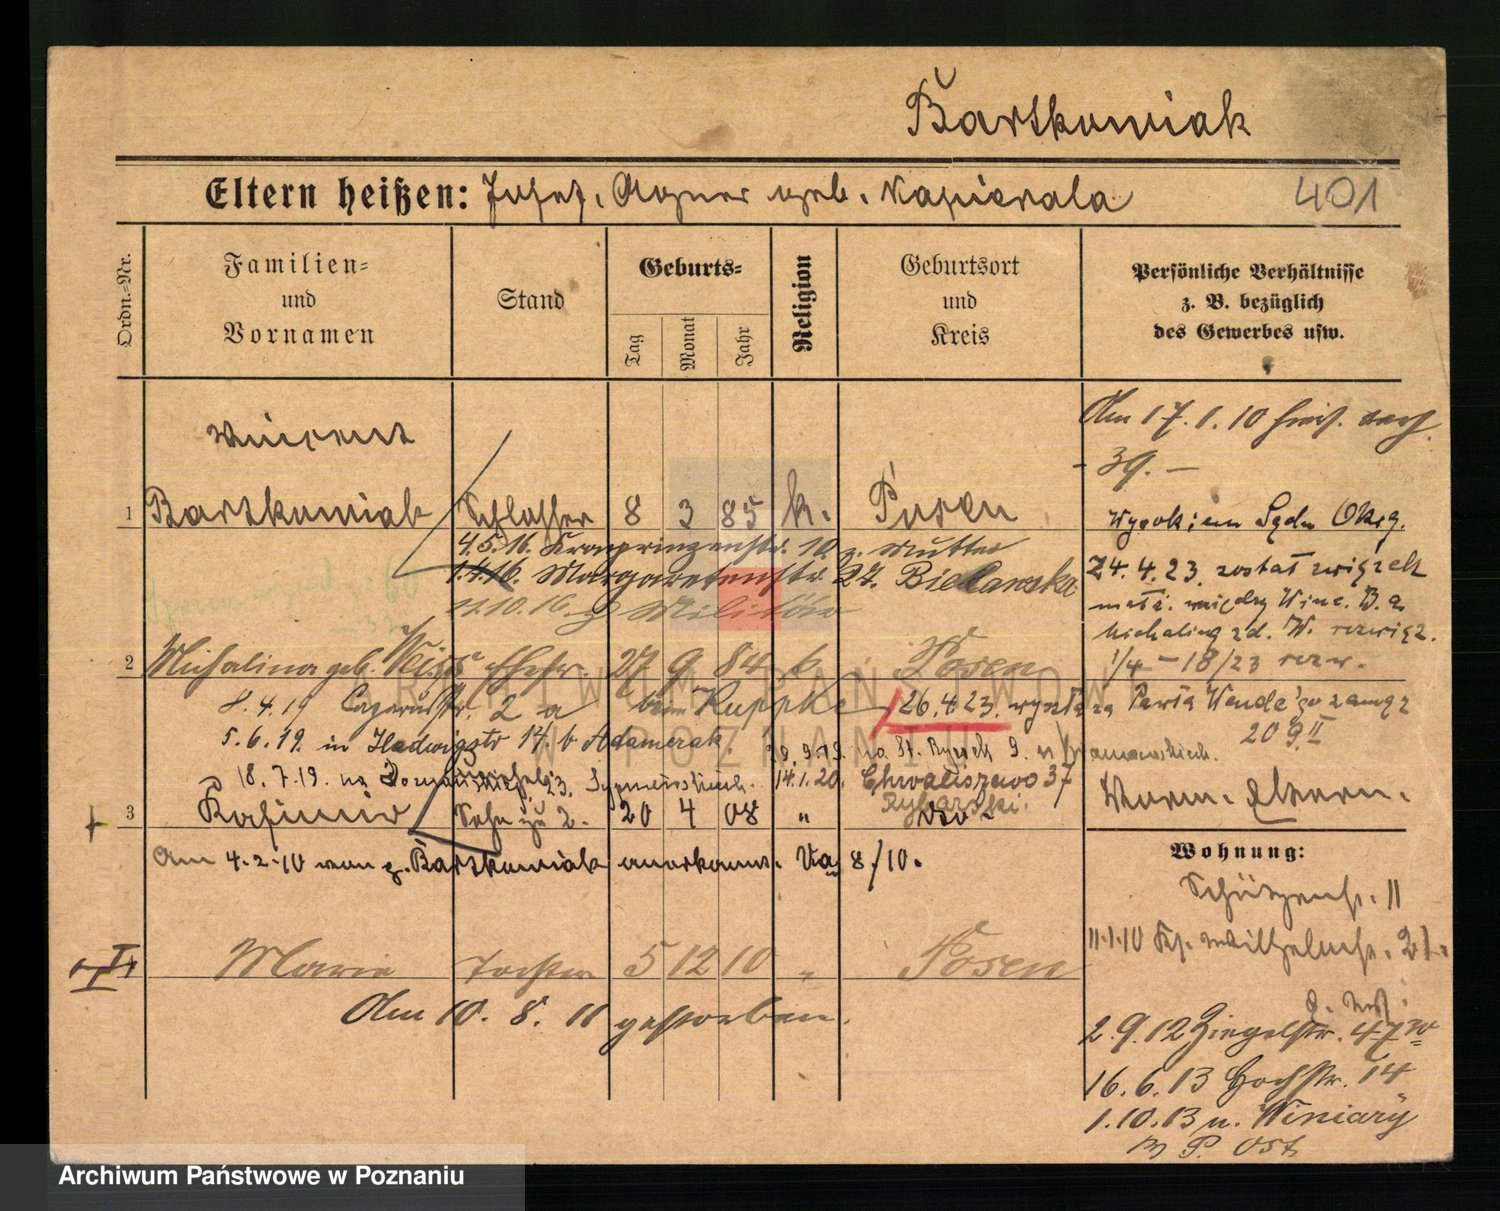 Bartkowiak
Eltern heißen: Josef, Agnes geb. Napierala 401
Ordn.-Nr.
Familien-
und
Vornamen
Stand
Geburts-
Tag
Monat
Jahr
Religion
Geburtsort
und
Kreis
Persönliche Verhältnisse
z. B. bezüglich
des Gewerbes usw.
Am 17.1.10
- 39. -
Vincent
1 Bartkowiak Schlosser 8 3 85 k. Posen
Wyrokiem Sądu Okrg.
24.4.23. został związek
małż. między Winc. B. a
Michaliną zd. W. rozwiąz.
1/4 - 18/23 rozw.
4.5.16. Kronprinzenstr. 10 z. Mutter
1.4.16. Margaretenstr. 27. Bielawska
11.10.16. z Militär
2 Michalina geb. Weiss Ehefr. 27 9 84 k. Posen
8.4.19 Lazarusstr. 2 a beim Ruppke
26.4.23. wyszła za Pawła Wende'go zamąż
209 II
5.6.19. in Hedwigstr 14. b Adamczak.
28.9.19. na St. Rynek 9.
18.7.19. na 23. 14.1.20. Chwaliszewo 37
Rybarski.
3 Kasimir Sohn zu 2. 20 4 08 " do
Am 4.2.10 von z. Bartkowiak anerkannt. Va 8/10.
Wohnung:
Schützenstr. 11
11.1.10 Kl. Wilhelmstr. 21.
Marie Tochter 5 12 10 " Posen
Am 10. 8. 11 gestorben.
2.9.12 Ziegelstr. 47
16.6.13 Hochstr. 14
1.10.13 n. Winiary
P. Ost
ARCHIWUM PAŃSTWOWE
W POZNANIU
Archiwum Państwowe w Poznaniu